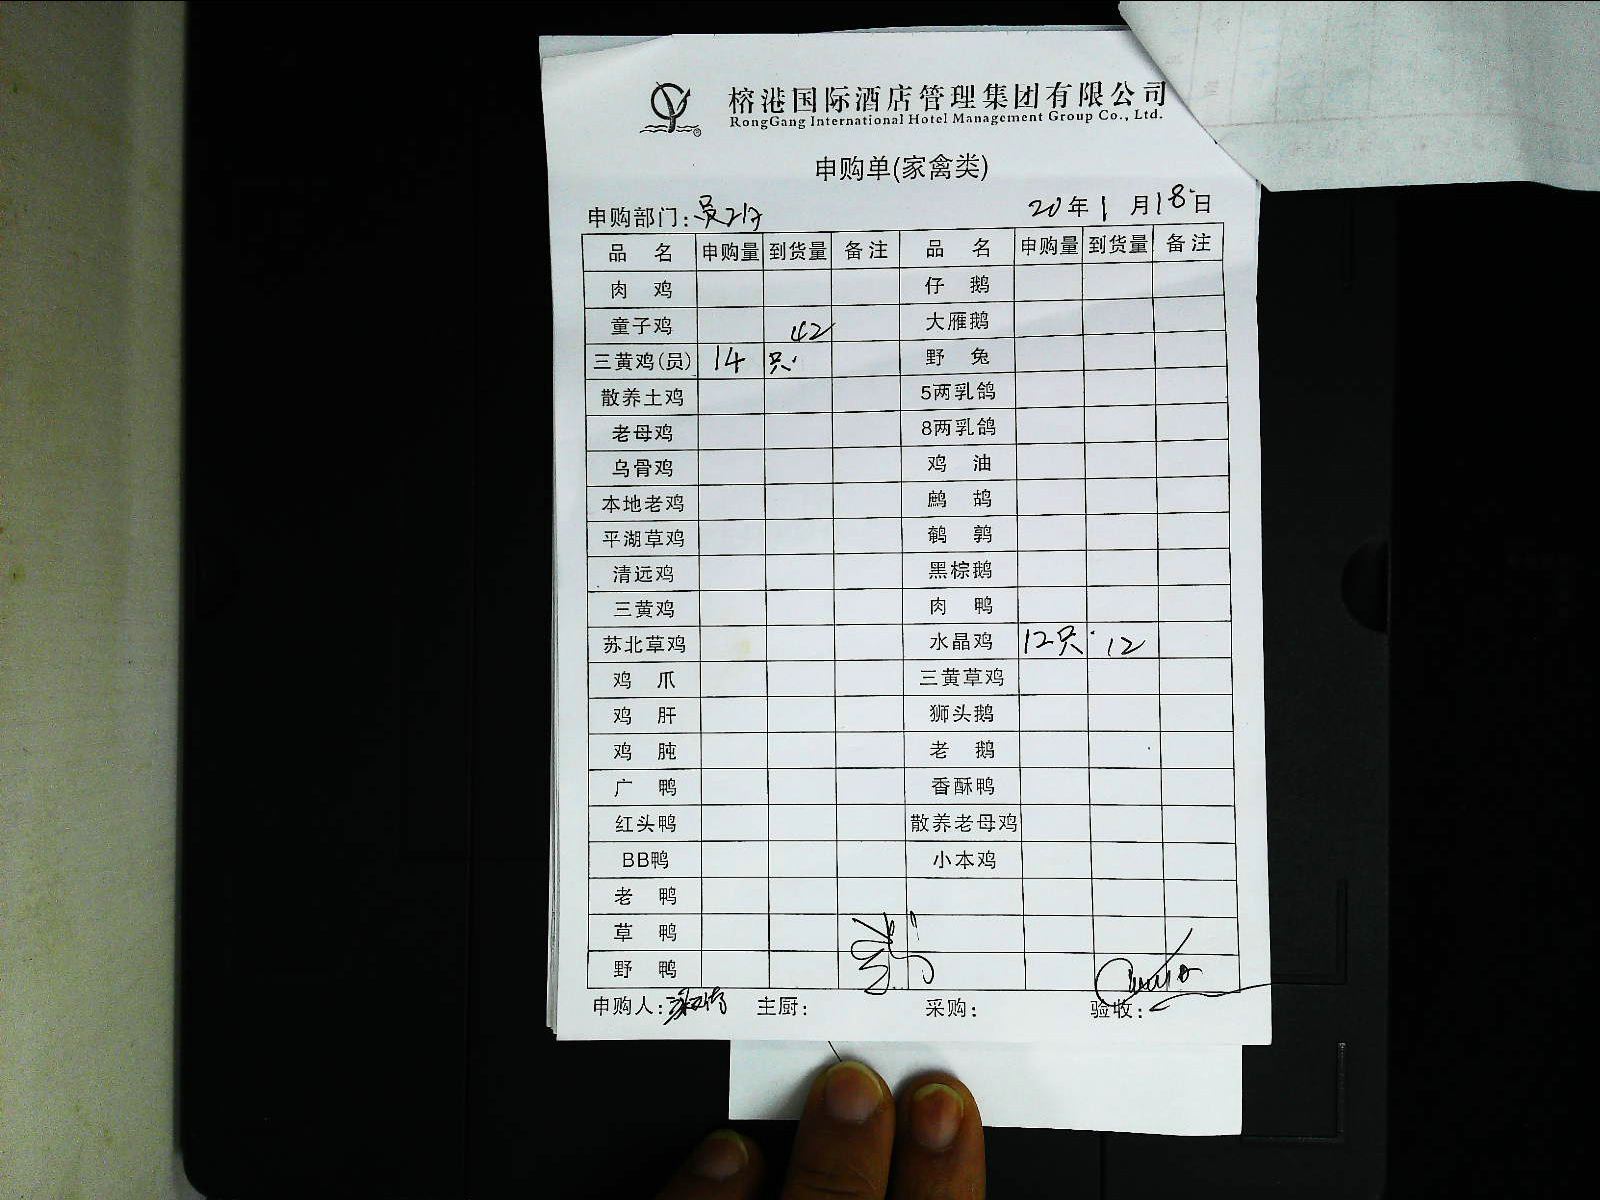 榕港国际酒店管理集团有限公司
RongGang International Hotel Management Group Co., Ltd.
申购单(家禽类)
申购部门: 20年1月18日
品 名 申购量 到货量 备注 品 名 申购量 到货量 备注
肉 鸡 仔 鹅
童子鸡 42 大雁鹅
三黄鸡(员) 14 只 野 兔
散养土鸡 5两乳鸽
老母鸡 8两乳鸽
乌骨鸡 鸡 油
本地老鸡 鹧 鸪
平湖草鸡 鹌 鹑
清远鸡 黑棕鹅
三黄鸡 肉 鸭
苏北草鸡 水晶鸡 12只 12
鸡 爪 三黄草鸡
鸡 肝 狮头鹅
鸡 肫 老 鹅
广 鸭 香酥鸭
红头鸭 散养老母鸡
BB鸭 小本鸡
老 鸭
草 鸭
野 鸭
申购人: 主厨: 采购: 验收: